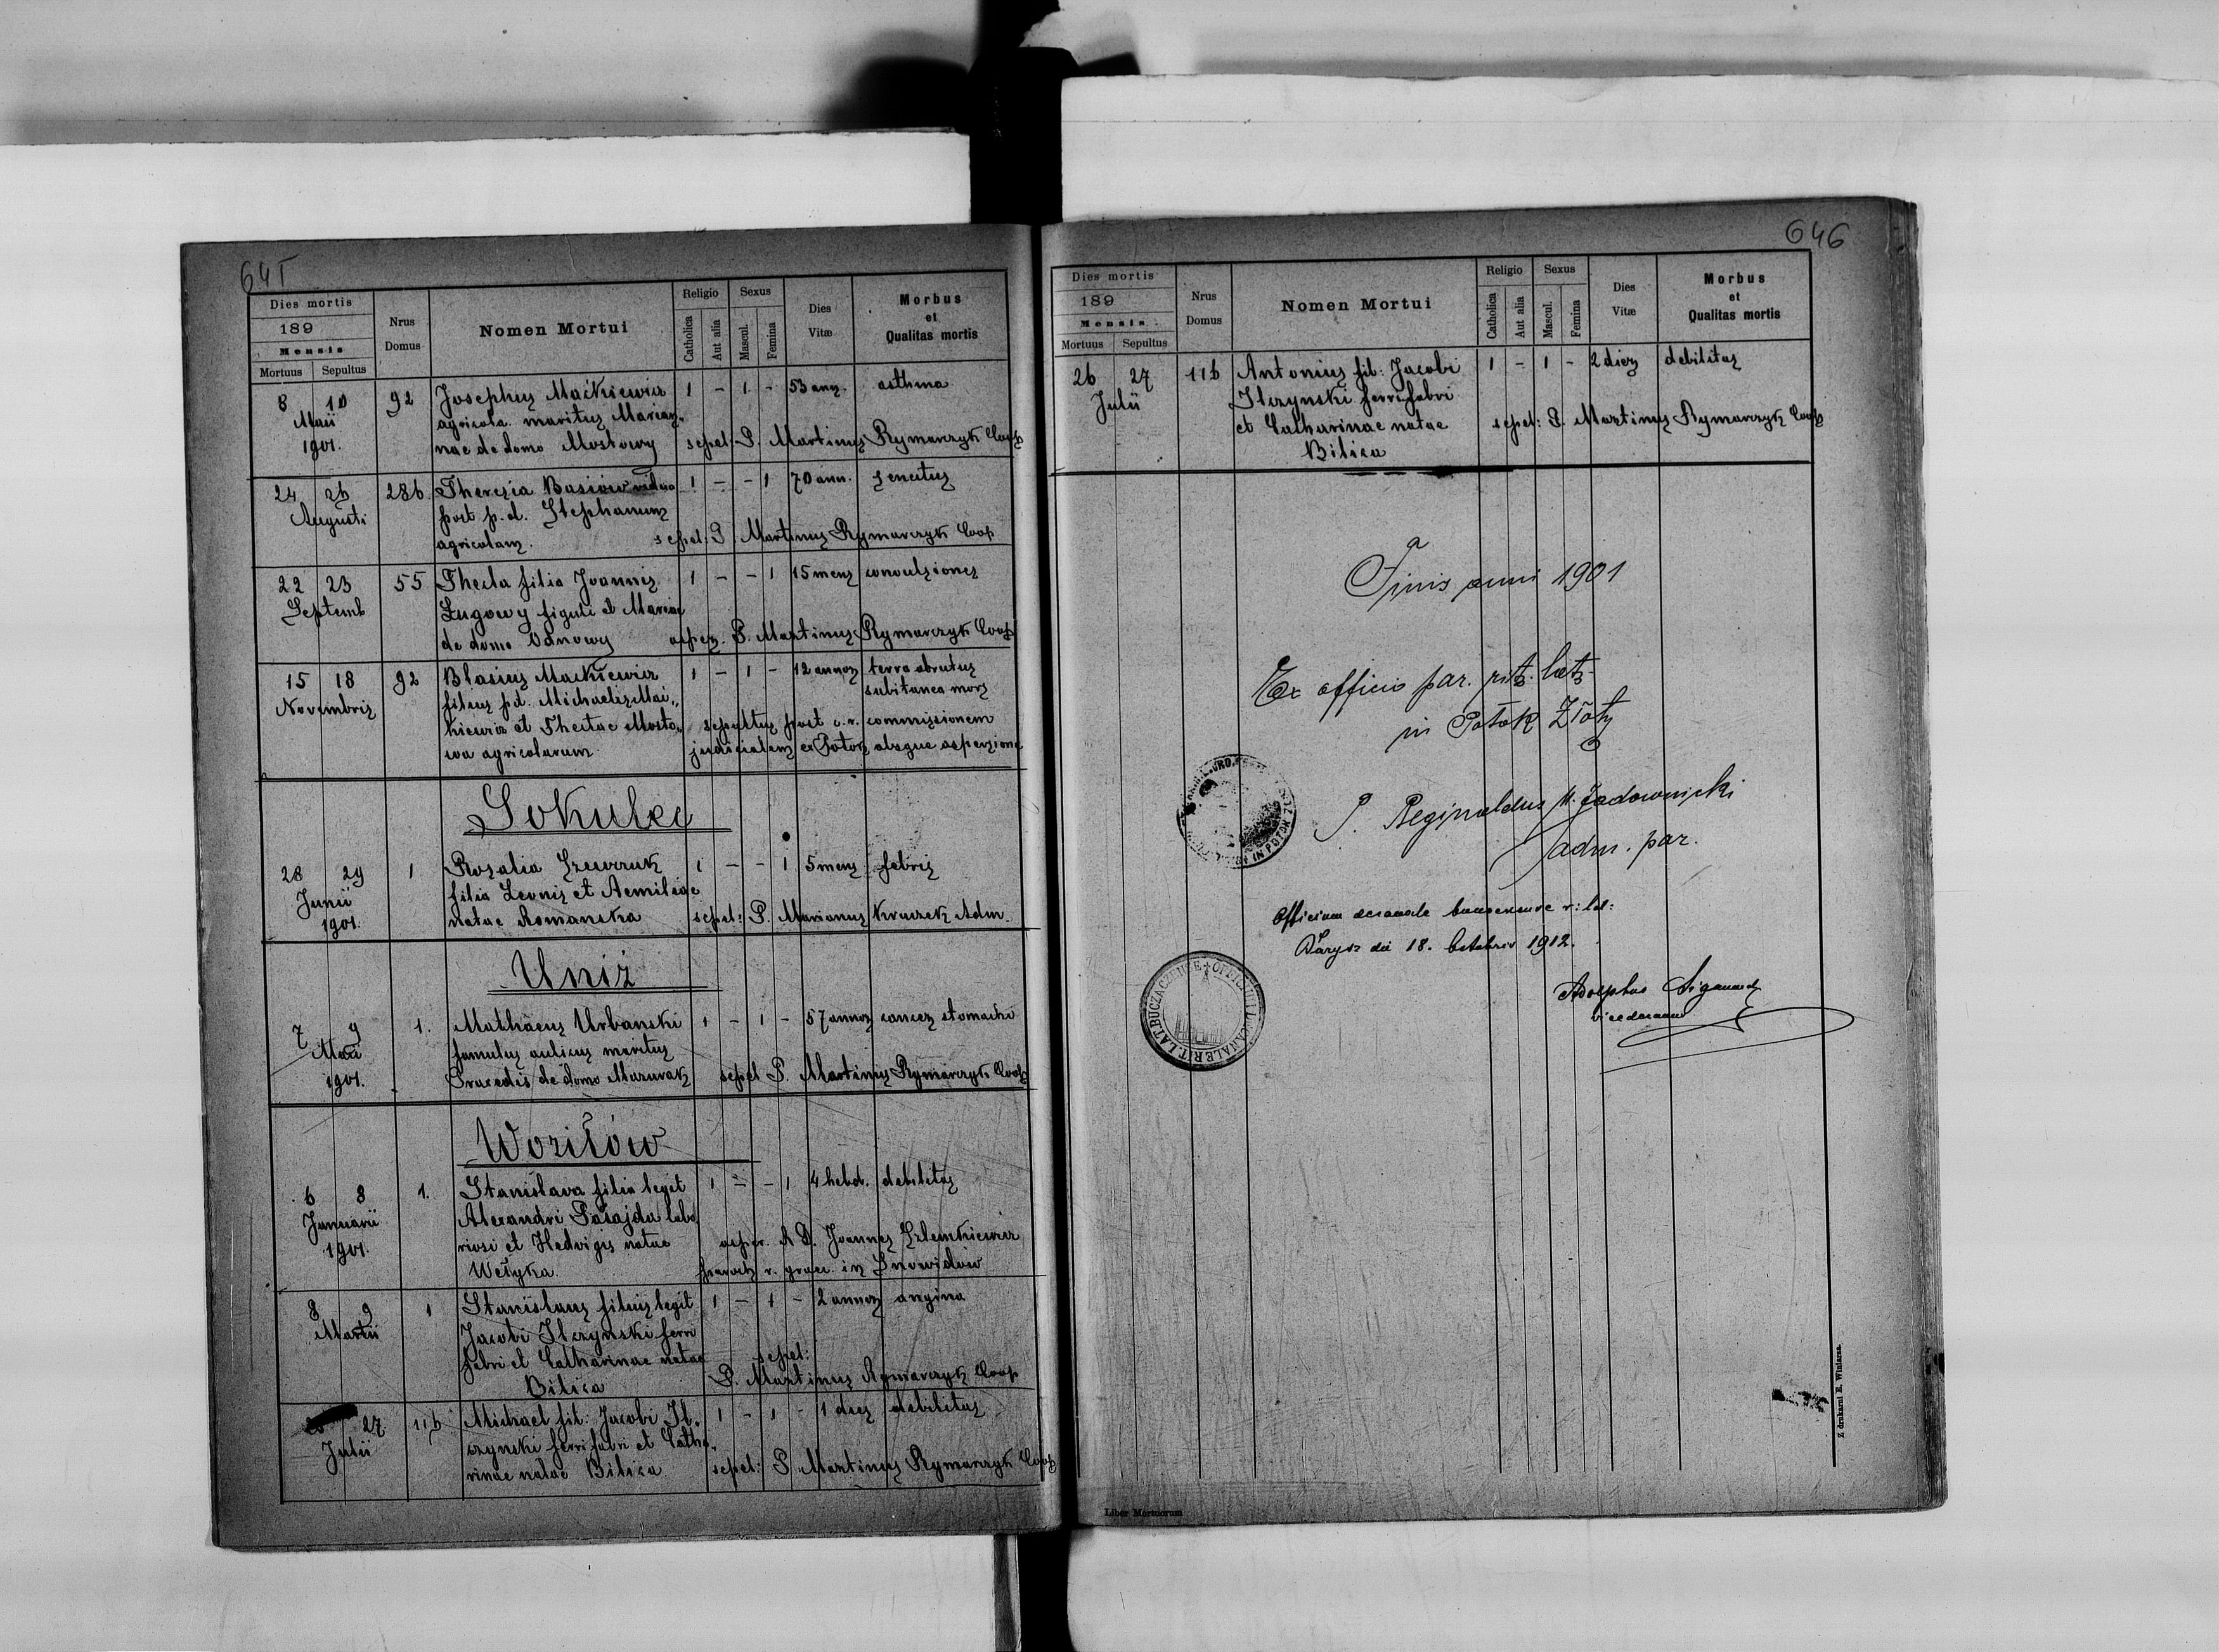 645
Dies mortis
189
Mensis
Mortuus Sepultus
Nrus
Domus
Nomen Mortui
Religio
Catholica
Aut alia
Sexus
Mascul.
Femina
Dies
Vitæ
Morbus
et
Qualitas mortis
8 10 92 Josephus Maćkiewicz 1 - 1 - 53 ann. asthma
Maii agricola maritus Marian„
1901. nae de domo Mostowy sepel: P. Martinus Rymarczyk Coop
24 26 286 Theresia Basiów vidua 1 - - 1 70 ann. senectus
Augusti post p. d. Stephanum
agricolam. sepel: P. Martinus Rymarczyk Coop
22 23 55 Thecla filia Joannis 1 - - 1 15 mens convulsiones
Septemb Ługowy figuli et Mariae
de domo asper. P. Martinus Rymarczyk Coop
15 18 92 Blasius Maćkiewicz 1 - 1 - 12 annos terra obrutus
subitanea mors
Novembris filius p.d. Michaelis Mać„
kiewicz et Theclae Mosto„ sepultus post c. r. commissionem
wa agricolarum judicialem ex Potok absque aspersione
Sokulec
28 29 1 Rosalia Szewczuk 1 - - 1 5 mens febris
Junii filia Leonis et Aemiliae
1901. natae Romanska sepel: P. Marianus Kruczek Adm.
Uniż
7 9 1. Mathaeus Urbanski 1 - 1 - 57 annos cancer stomachi
Maii famulus aulicus maritus
1901. Praxedis de domo Mazurak sepel P. Martinus Rymarczyk Coop
Woziłów
6 8 1. Stanislava filia legit 1 - - 1 4 hebd. debilitas
Januarii Alexandri Pasajda labo
1901. riosi et Hedvigis natae asper. A. D. Joannes Szlemkiewicz
Wełyka. paroch r. graec. in Snowidów
8 9 1 Stanislaus filius legit 1 - 1 - 2 annos angina
Martii Jacobi Ilczynski ferri
fabri et Catharinae natae sepel:
Bilica P. Martinus Rymarczyk Coop
27 116 Michael fil: Jacobi Il„ 1 - 1 - 1 dies debilitas
Julii czynski ferri fabri et Catha„
rinae natae Bilica sepel: P. Martinus Rymarczyk Coop
646
Dies mortis
189
Mensis
Mortuus Sepultus
Nrus
Domus
Nomen Mortui
Religio
Catholica
Aut alia
Sexus
Mascul.
Femina
Dies
Vitæ
Morbus
et
Qualitas mortis
26 27 116 Antonius fil: Jacobi 1 - 1 - 2 dies debilitas
Julii Ilczynski ferri fabri
et Catharinae natae sepel: P. Martinus Rymarczyk Coop
Bilica
Finis anni 1901
Ex officio par. rit. lat.
in Potok Złoty
P. Reginaldus M. Jadownicki
adm. par.
Officium decanale buczacense r: lat:
Barysz die 18. Octobris 1912.
Adolphus
vicedecanus
Z drukarni E. Winiarza.
Liber Mortuorum